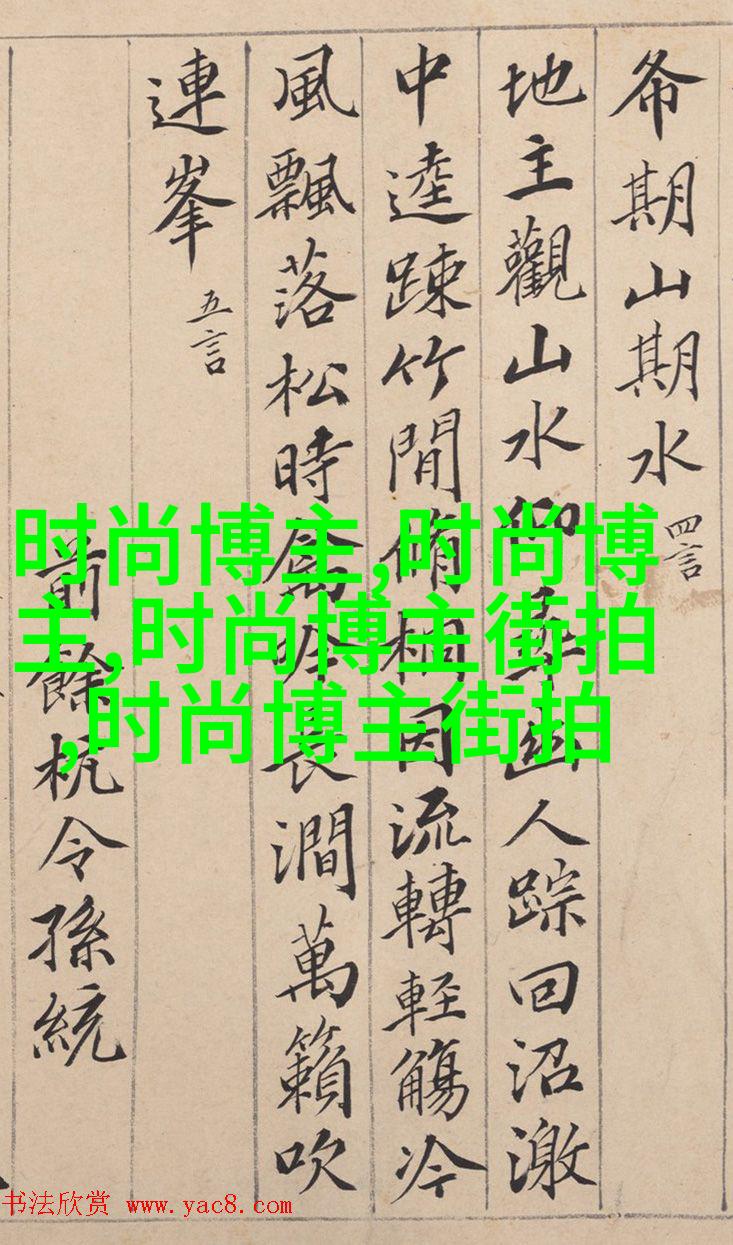 希期山期水 四言
地主觀山水仰尋幽人踪回沼激
中逵踈竹間脩桐因流轉輕觴冷
風飄落松時禽吟長澗萬籟吹
連峯 五言
前餘杭令孫統
时尚博主,时尚博
主,时尚博主街拍
,时尚博主街拍
书法欣赏 www.yac8.com